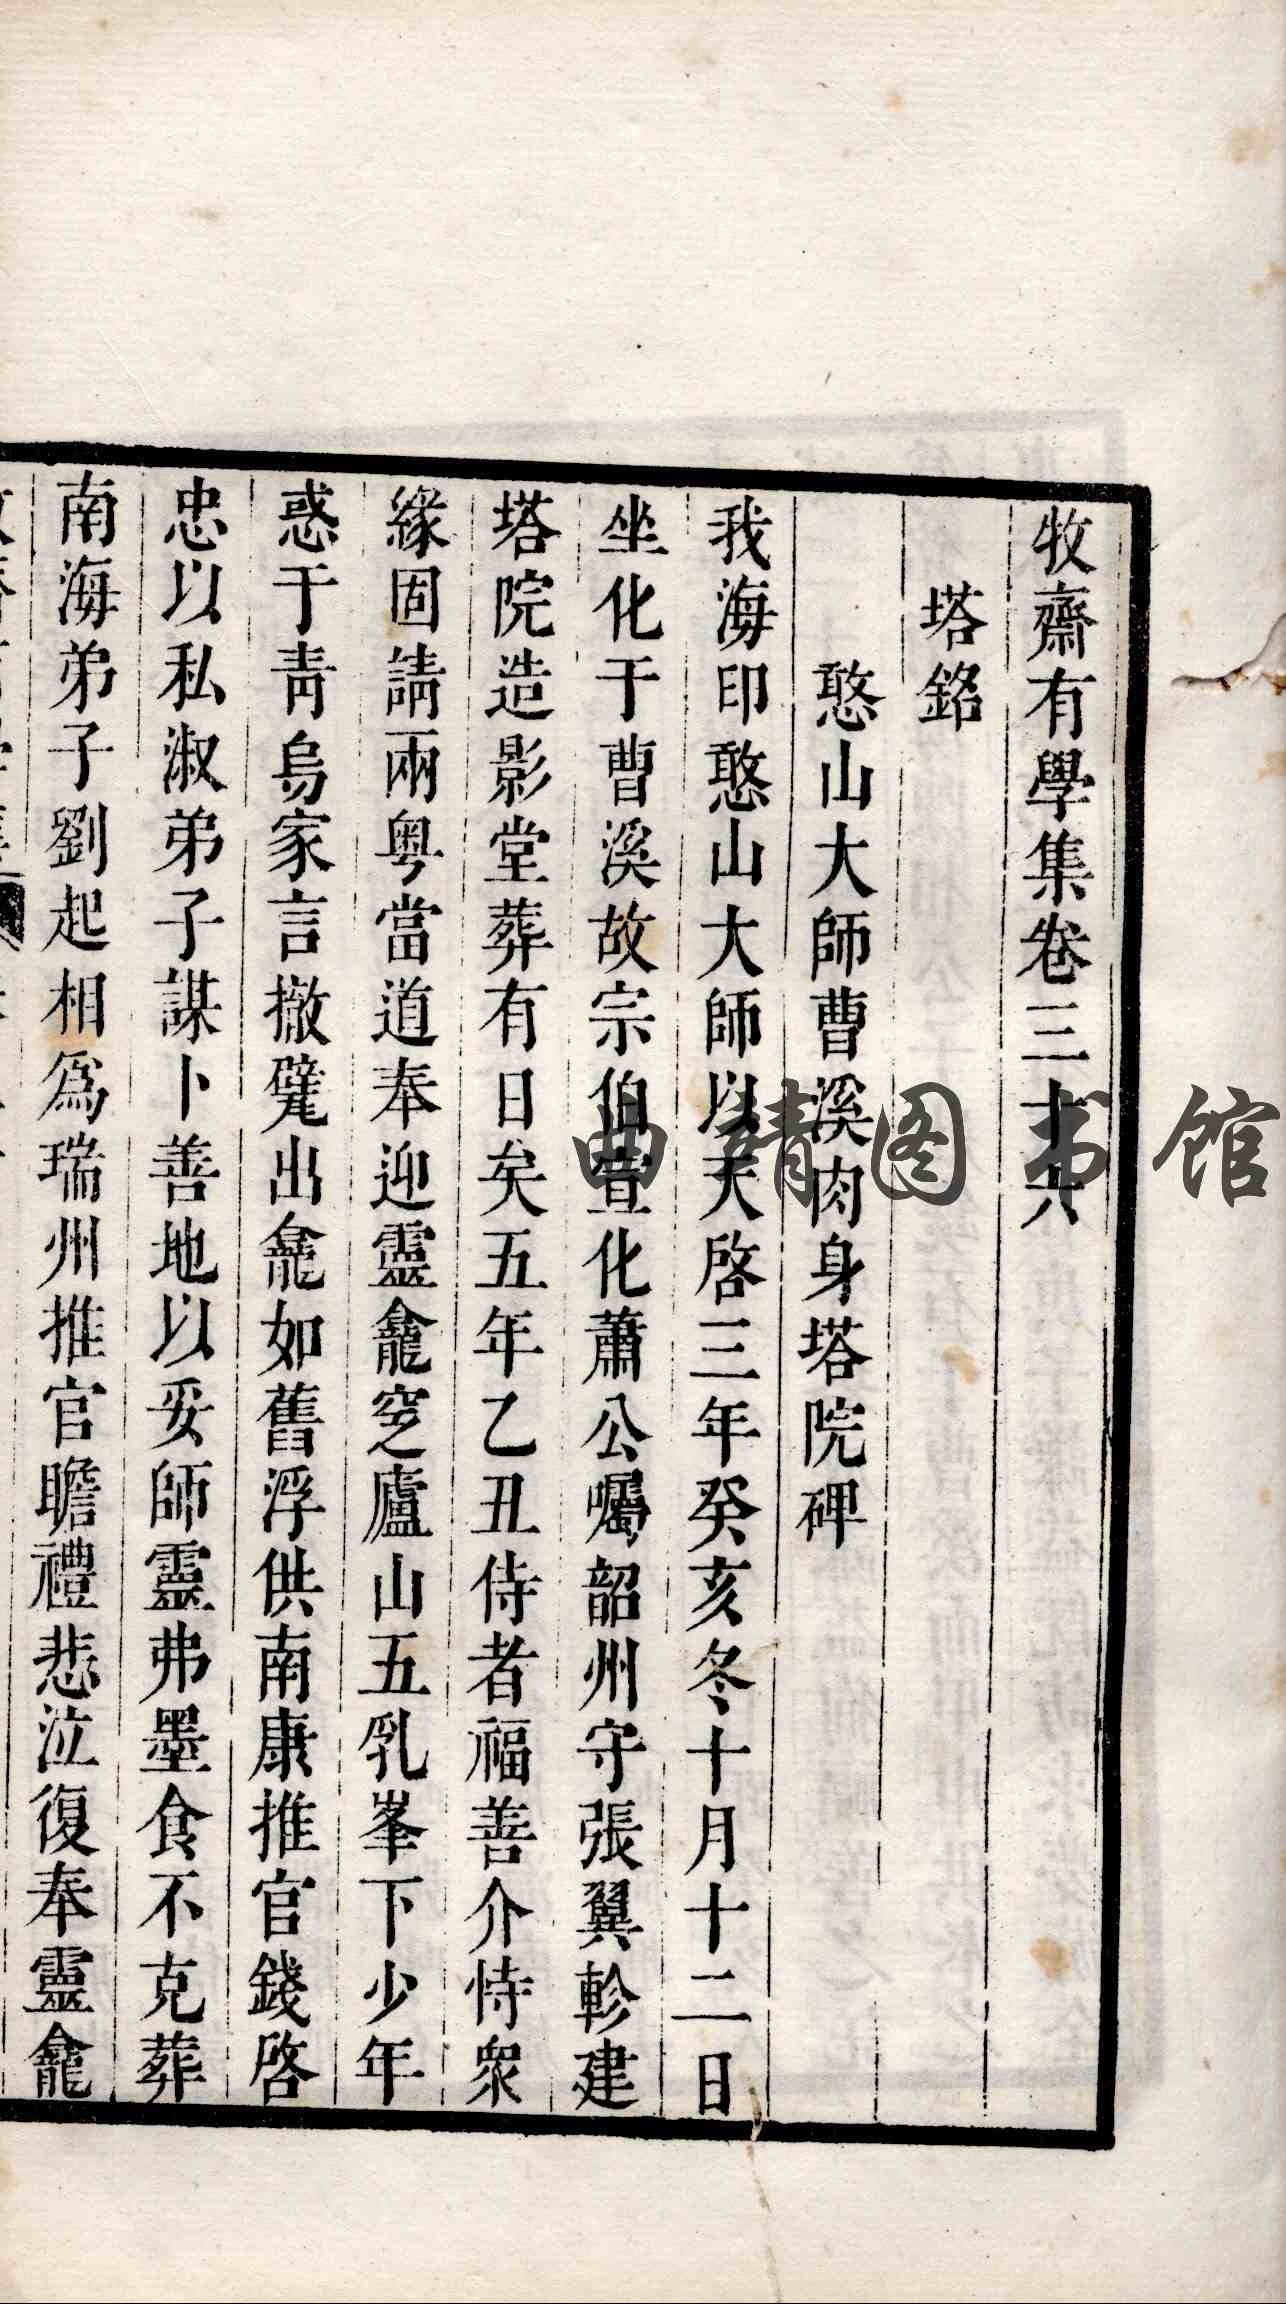 牧齋有學集卷三十六
塔銘
憨山大師曹溪肉身塔院碑
我海印憨山大師以天啓三年癸亥冬十月十二日
坐化于曹溪故宗伯宣化蕭公囑韶州守張翼軫建
塔院造影堂葬有日矣五年乙丑侍者福善介恃衆
緣固請兩粵當道奉迎靈龕窆廬山五乳峯下少年
惑于靑烏家言撤甓出龕如舊浮供南康推官錢啓
忠以私淑弟子謀卜善地以妥師靈弗墨食不克葬
南海弟子劉起相爲瑞州推官瞻禮悲泣復奉靈龕
曲靖图书馆